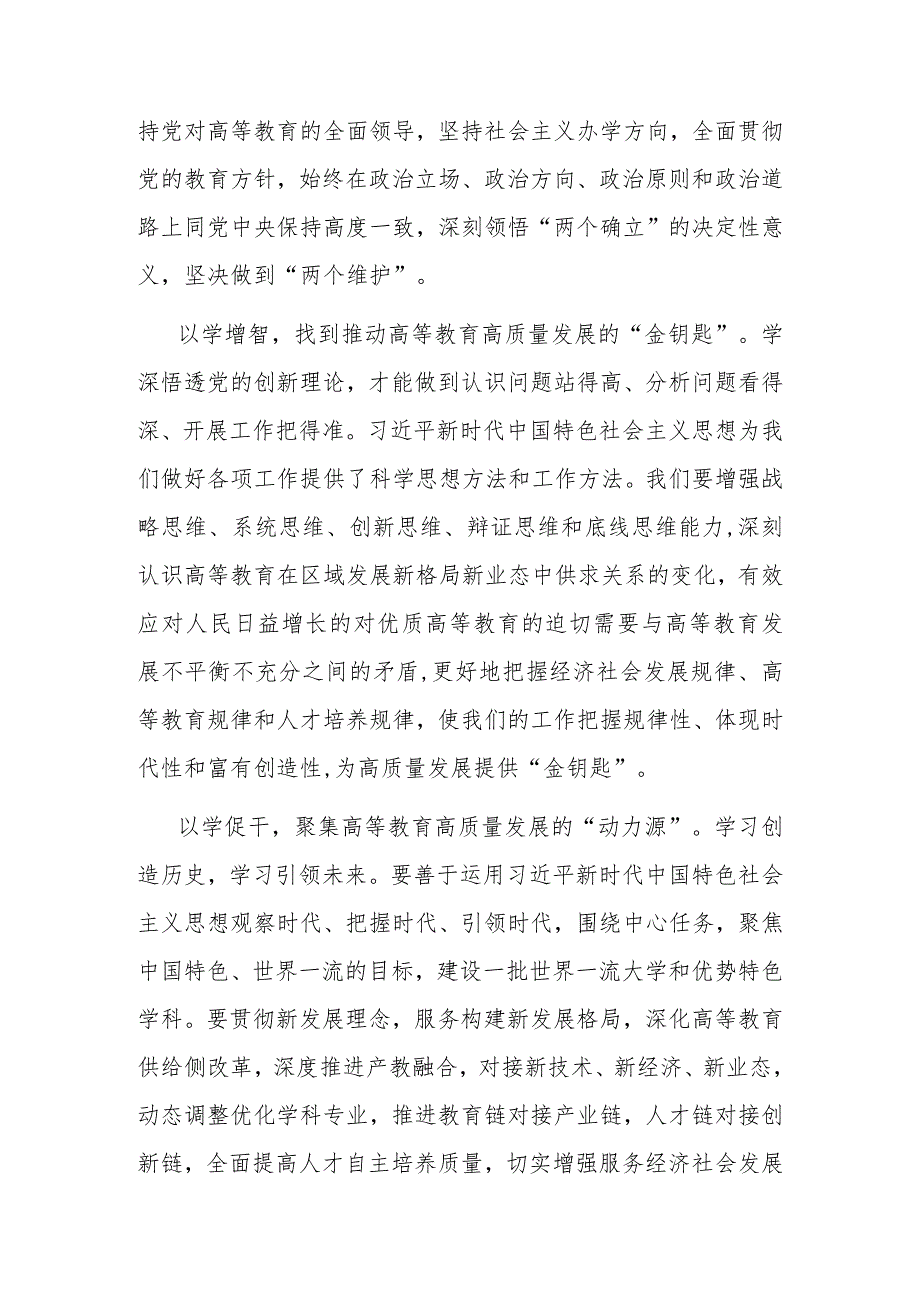 持党对高等教育的全面领导，坚持社会主义办学方向，全面贯彻
党的教育方针，始终在政治立场、政治方向、政治原则和政治道
路上同党中央保持高度一致，深刻领悟“两个确立”的决定性意
义，坚决做到“两个维护”。
以学增智，找到推动高等教育高质量发展的“金钥匙”。学
深悟透党的创新理论，才能做到认识问题站得高、分析问题看得
深、开展工作把得准。习近平新时代中国特色社会主义思想为我
们做好各项工作提供了科学思想方法和工作方法。我们要增强战
略思维、系统思维、创新思维、辩证思维和底线思维能力,深刻
认识高等教育在区域发展新格局新业态中供求关系的变化，有效
应对人民日益增长的对优质高等教育的迫切需要与高等教育发
展不平衡不充分之间的矛盾,更好地把握经济社会发展规律、高
等教育规律和人才培养规律，使我们的工作把握规律性、体现时
代性和富有创造性,为高质量发展提供“金钥匙”。
以学促干，聚集高等教育高质量发展的“动力源”。学习创
造历史，学习引领未来。要善于运用习近平新时代中国特色社会
主义思想观察时代、把握时代、引领时代，围绕中心任务，聚焦
中国特色、世界一流的目标，建设一批世界一流大学和优势特色
学科。要贯彻新发展理念，服务构建新发展格局，深化高等教育
供给侧改革，深度推进产教融合，对接新技术、新经济、新业态，
动态调整优化学科专业，推进教育链对接产业链，人才链对接创
新链，全面提高人才自主培养质量，切实增强服务经济社会发展